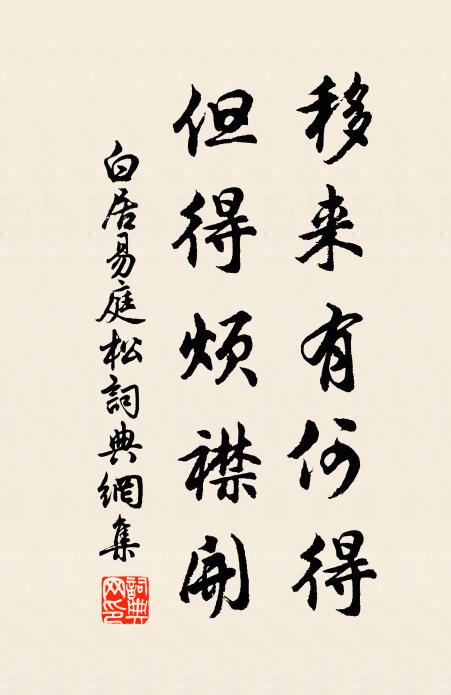 移来有何得
但得烦襟開
白居易庭松詞典網集
詞典网印